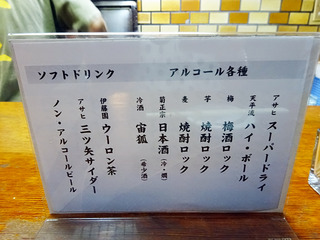 アルコール各種
アサヒ スーパードライ
天平流 ハイ・ボール
梅 梅酒ロック
芋 焼酎ロック
麦 焼酎ロック
菊正宗 日本酒(冷・燗)
冷酒 宙狐(希少酒)
ソフトドリンク
伊藤園 ウーロン茶
アサヒ 三ツ矢サイダー
ノン・アルコールビール